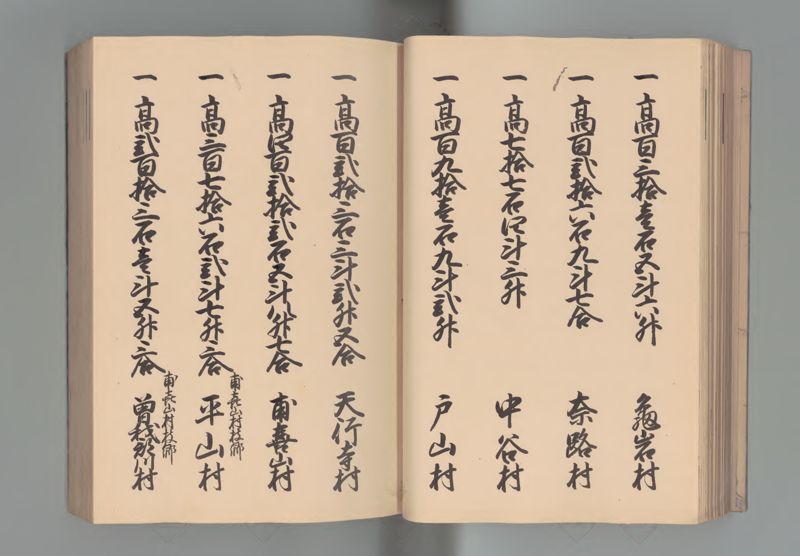 一 高百三拾壱石五斗六升 亀岩村
一 高百弐拾六石九斗七合 奈路村
一 高七拾七石四斗三升 中谷村
一 高百九拾壱石九斗弐升 戸山村
一 高百弐拾三石三斗弐升五合 天行寺村
一 高四百弐拾弐石五斗八升七合 甫喜山村
甫喜山村枝郷
一 高三百七拾六石弐斗七升三合 平山村
甫喜山村枝郷
一 高弐百拾三石壱斗五升三合 曽我部川村